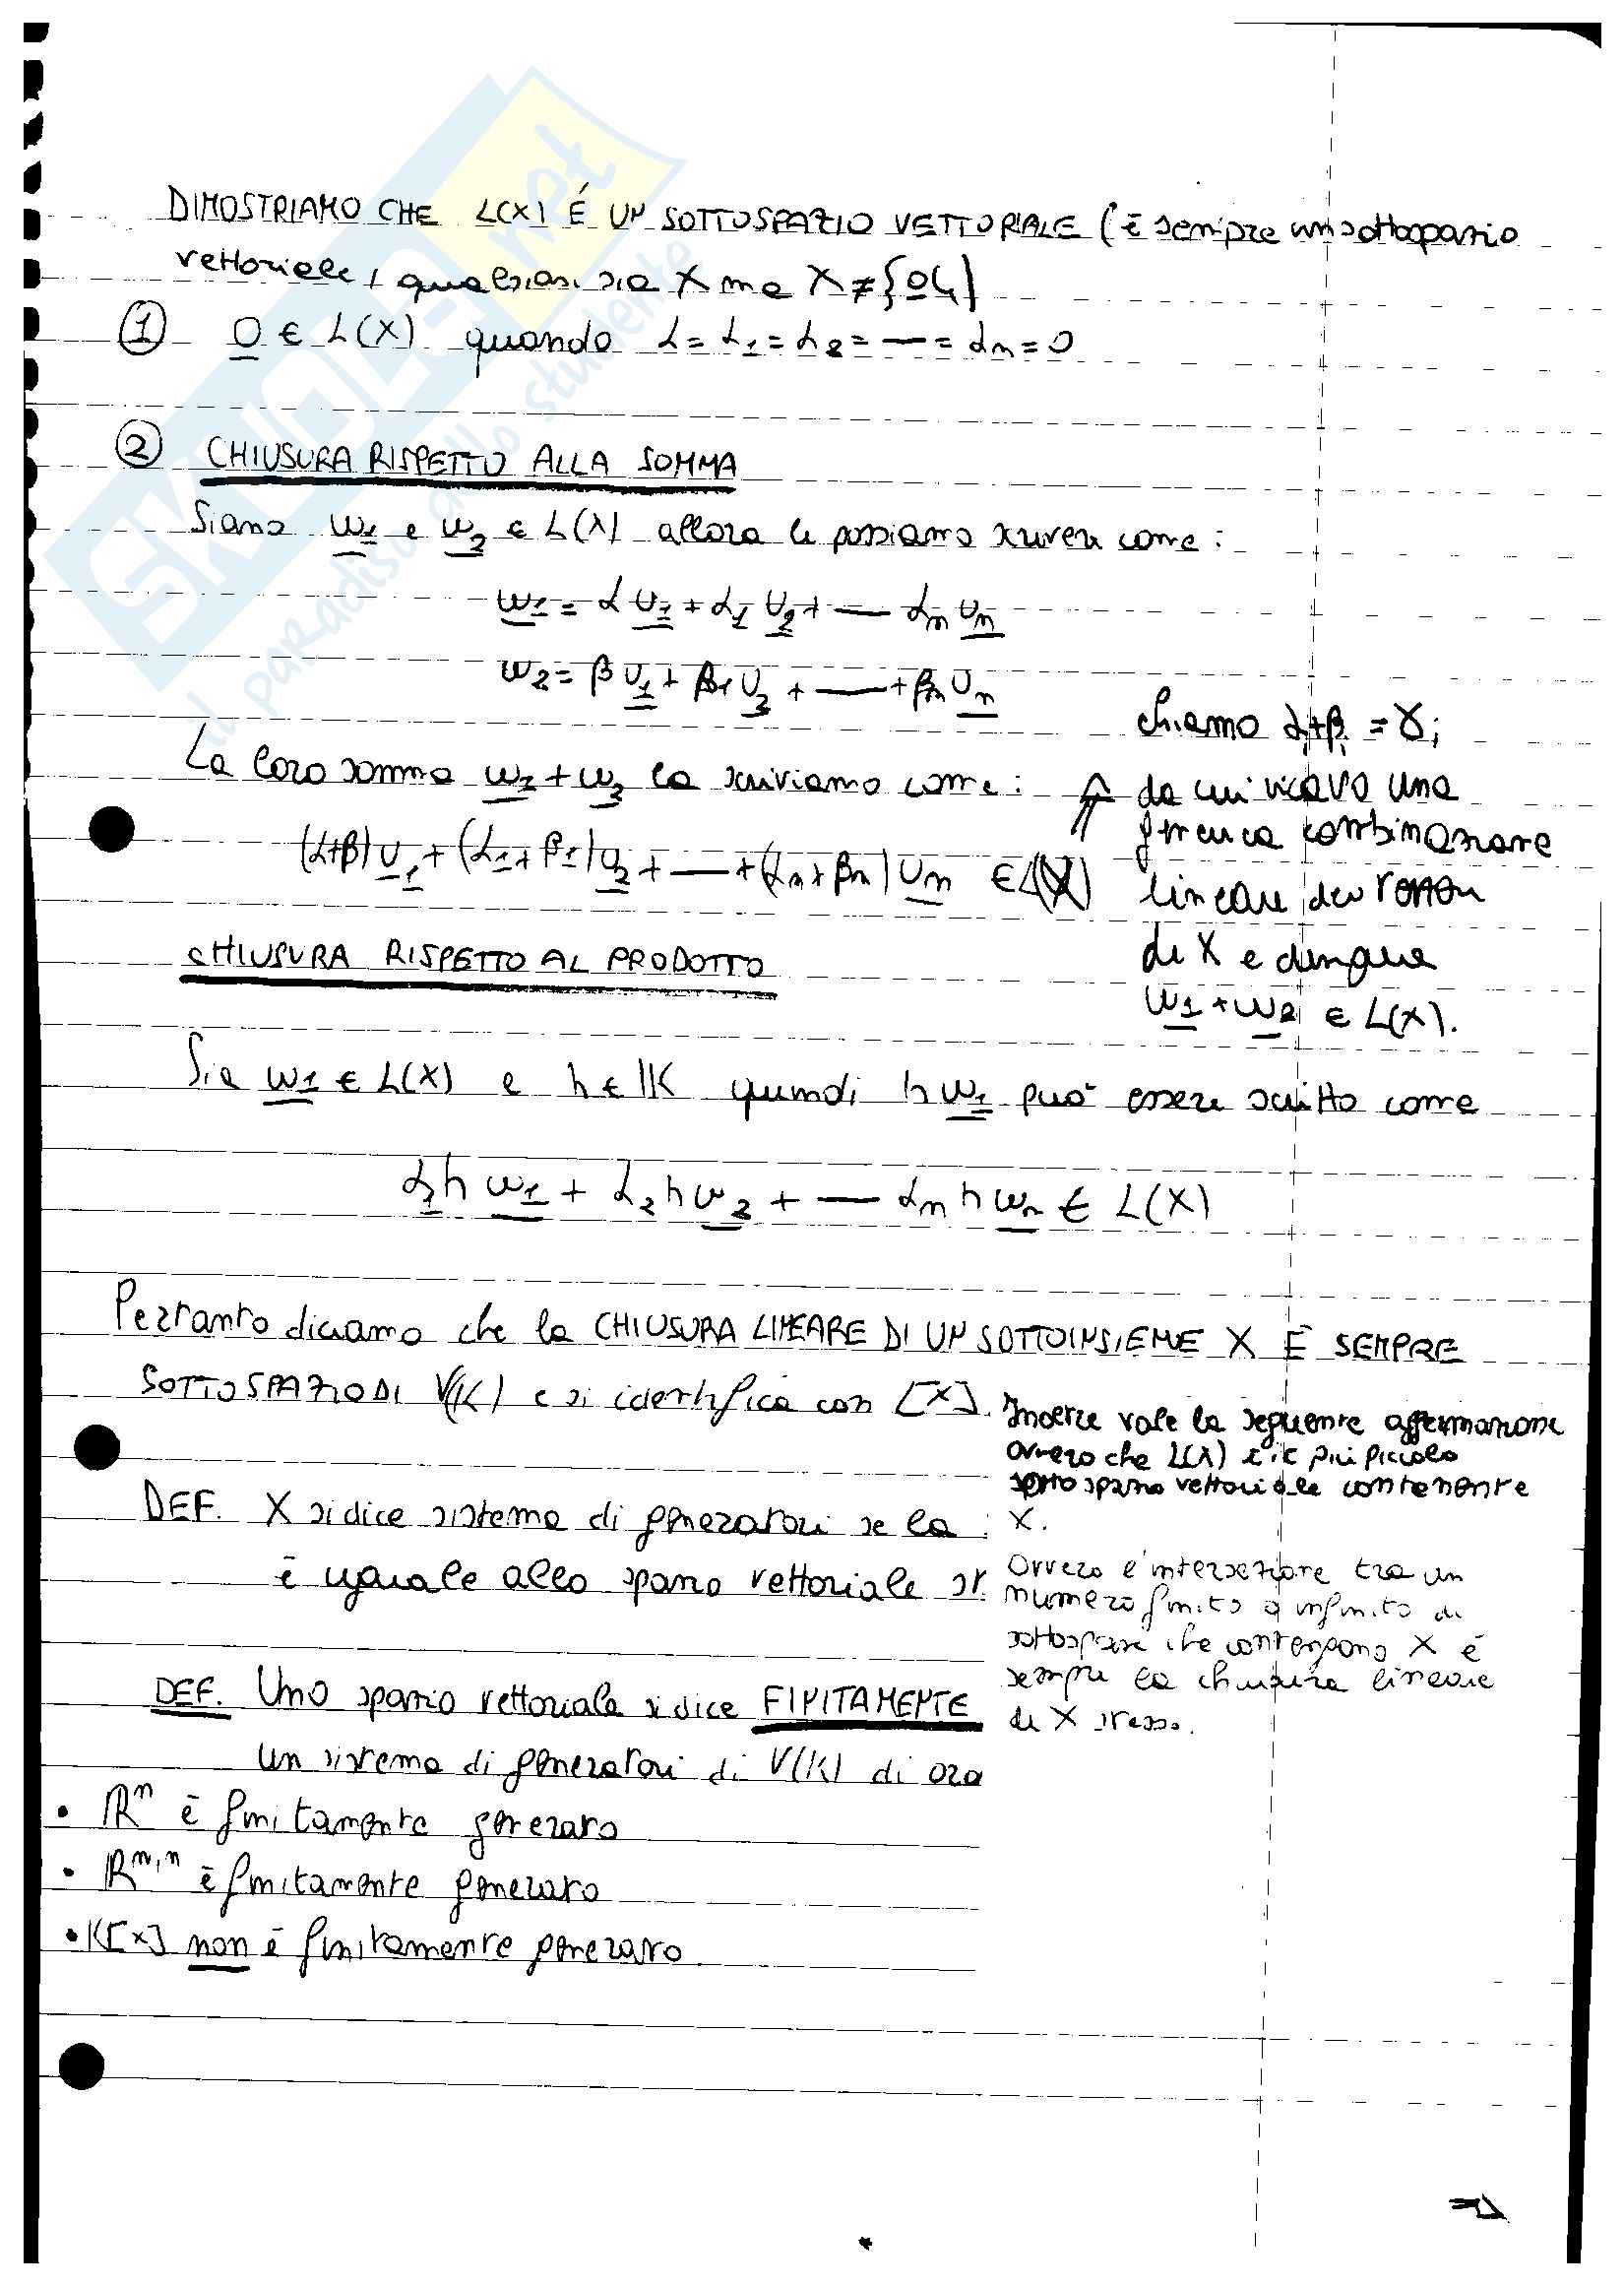 DIMOSTRIAMO CHE L(X) É UN SOTTOSPAZIO VETTORIALE (è sempre un sottospazio
vettoriale, qualsiasi sia X ma X ≠ {0}
① 0 ∈ L(X) quando α = α1 = α2 = — = αn = 0
② CHIUSURA RISPETTO ALLA SOMMA
Siano w1 e w2 ∈ L(X) allora li possiamo scrivere come:
w1 = α v1 + α1 v2 + — αn vn
w2 = β v1 + β1 v2 + — + βn vn
La loro somma w1 + w2 la scriviamo come:
(α+β) v1 + (α1 + β1) v2 + — + (αn + βn) vn ∈ L(X)
⇑ chiamo αi+βi = γi
da cui ricavo una
generica combinazione
lineare dei vettori
di X e dunque
w1 + w2 ∈ L(X).
CHIUSURA RISPETTO AL PRODOTTO
Sia w1 ∈ L(X) e h ∈ K quindi h w1 può essere scritto come
α1 h w1 + α2 h v2 + — αn h wn ∈ L(X)
Pertanto diciamo che la CHIUSURA LINEARE DI UN SOTTOINSIEME X È SEMPRE
SOTTOSPAZIO DI V(K) e si identifica con [X].
Inoltre vale la seguente affermazione
ovvero che L(X) è il più piccolo
sottospazio vettoriale contenente
X.
Ovvero l'intersezione tra un
numero finito o infinito di
sottospazi che contengono X è
sempre la chiusura lineare
di X stesso.
DEF. X si dice sistema di generatori se la
è uguale allo spazio vettoriale st.
DEF. Uno spazio vettoriale si dice FINITAMENTE
un sistema di generatori di V(K) di
• Rⁿ è finitamente generato
• Rᵐ,ⁿ è finitamente generato
• K[x] non è finitamente generato.
SKUOLA.net
il paradiso dello studente